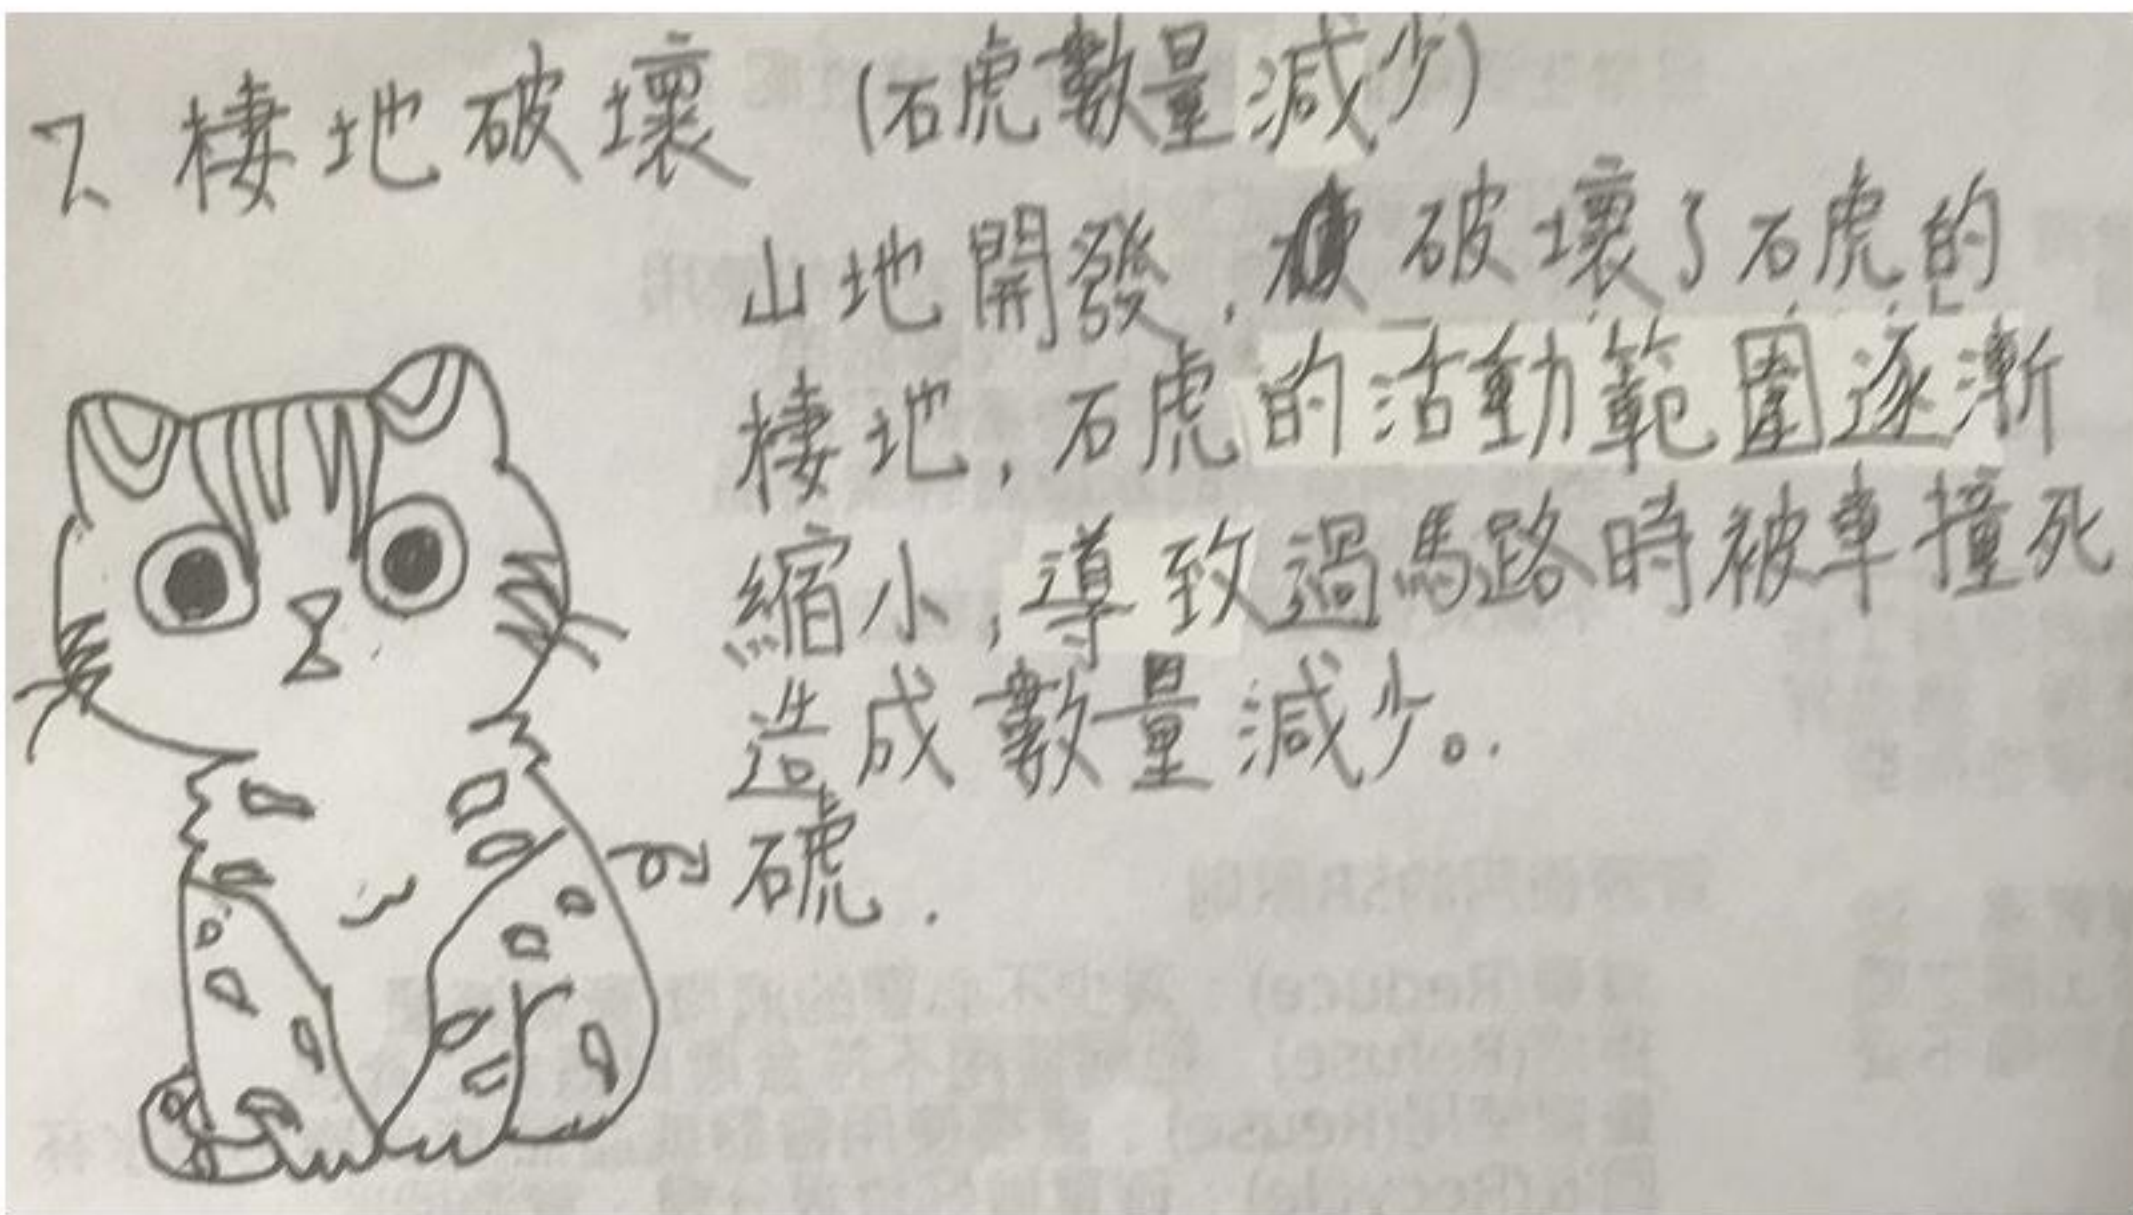 7、棲地破壞 (石虎數量減少)
山地開發,破壞了石虎的
棲地,石虎的活動範圍逐漸
縮小,導致過馬路時被車撞死
造成數量減少。
石虎.